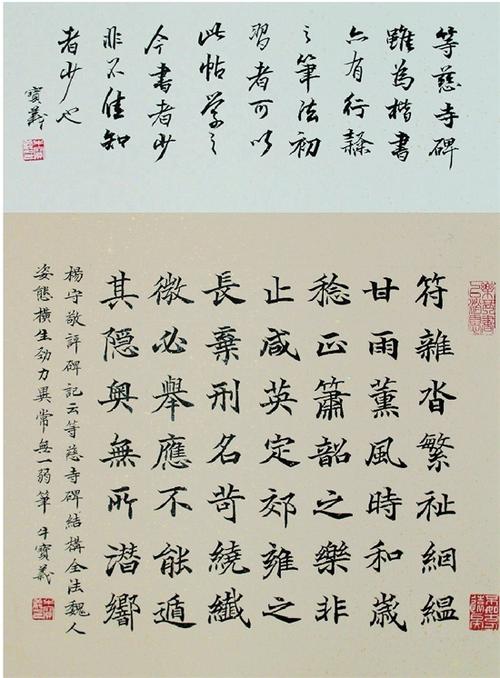 等慈寺碑
雖為楷書
亦有行隸
之筆法初
習者可以
此帖學之
今書者少
非不佳知
者少也
寶義
符雜沓繁祉絪縕
甘雨薰風時和歲
稔正簫韶之樂非
止咸英定郊雍之
長棄刑名苛繞纖
微必舉應不能遁
其隱奧無所潛響
楊守敬評碑記云等慈寺碑結構全法魏人
姿態橫生勁力異常無一弱筆 牛寶義